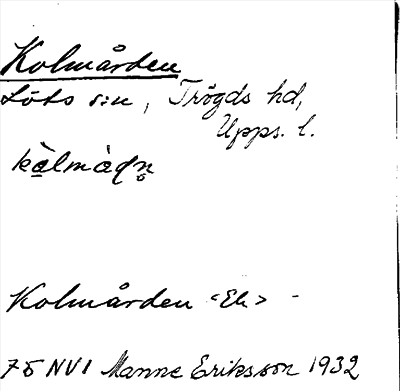 Kolmården
Löts sn, Trögds hd,
Upps. l.
Kolmården <Ek> -
75 NV1 Manne Eriksson 1932